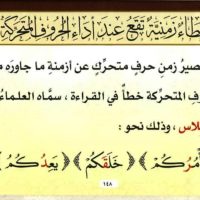 أخطاء زمنية تقع عند أداء الحروف المتحركة
صير زمن حرف متحرك عن أزمنة ما جاوره م
رف المتحركة خطأ في القراءة ، سمَّاه العلماء
لاس ، وذلك نحو :
﴿خَلَقَكُمْ﴾ ﴿يَعِدُكُمُ
١٤٨